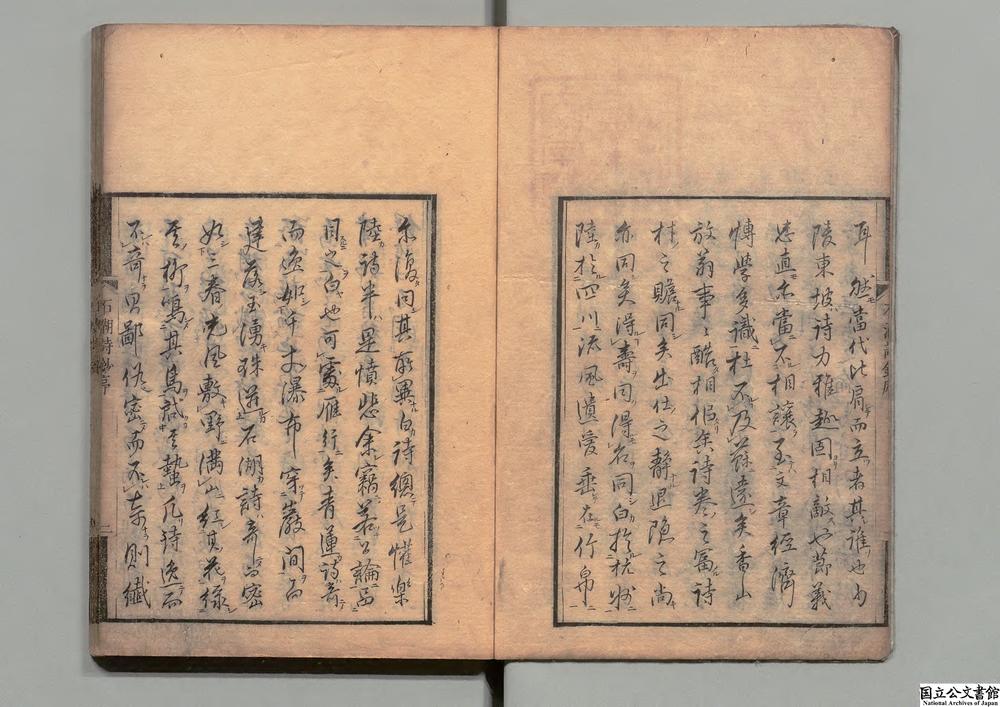 耳然當代比肩而立者其誰也少
陵東坡詩力雅趣固相敵也節義
忠直亦當不相讓至文章經濟
博學多識杜不及蘇遠矣香山
放翁事々酷相似矣詩卷之富詩
材之贍同矣出仕之靜退隱之尚
亦同矣得壽同得名同白於杭州
陸於四川流風遺愛垂在竹帛
亦復同其所異白詩總是懽樂
陸詩半是憤悲余竊若公論品
目之白也可處雁行矣青蓮詩奇
而逸如千丈瀑布穿巖間而
建落玉湧珠迸石湖詩奇而密
如三春光風敷野滿山紅其花綠
其柳鳴其鳥啓其蟄凡詩逸而
不奇則鄙俗密而不奇則纖
石湖詩鈔序
二
国立公文書館
National Archives of Japan